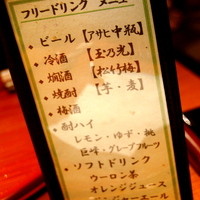 フリードリンク メニュー
・ビール【アサヒ中瓶】
・冷酒【玉乃光】
・燗酒【松竹梅】
・焼酎【芋・麦】
・梅酒
・酎ハイ
レモン・ゆず・桃
巨峰・グレープフルーツ
・ソフトドリンク
ウーロン茶
オレンジジュース
ジンジャーエール